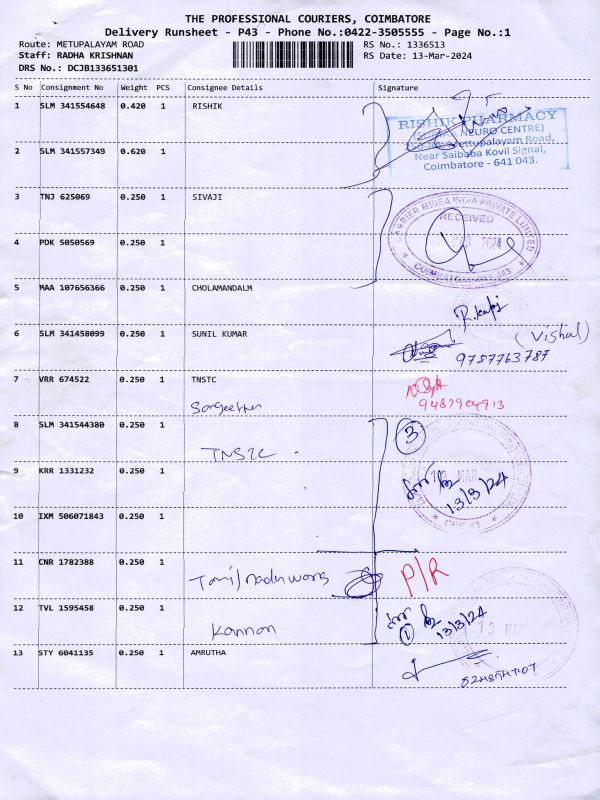 THE PROFESSIONAL COURIERS, COIMBATORE
Delivery Runsheet - P43 - Phone No.:0422-3505555 - Page No.:1
Route: METUPALAYAM ROAD RS No.: 1336513
Staff: RADHA KRISHNAN RS Date: 13-Mar-2024
DRS No.: DCJB133651301
S No Consignment No Weight PCS Consignee Details Signature
1 SLM 341554648 0.420 1 RISHIK
RISHIK PHARMACY
NEURO CENTRE)
Mettupalayam Road,
2 SLM 341557349 0.620 1
Near Saibaba Kovil Signal,
Coimbatore - 641 043.
3 TNJ 625069 0.250 1 SIVAJI
CARRIER MIDEA INDIA PRIVATE LIMITED
RECEIVED
4 PDK 5050569 0.250 1
2024
5 MAA 107656366 0.250 1 CHOLAMANDALM
6 SLM 341458099 0.250 1 SUNIL KUMAR
(Vishal)
9787763787
7 VRR 674522 0.250 1 TNSTC
Sangeetha
9487904913
8 SLM 341544380 0.250 1
3
TNSTC
13 MAR
9 KRR 1331232 0.250 1
13/3/24
10 IXM 506071843 0.250 1
11 CNR 1782388 0.250 1
P/R
Tamilnadu wons
12 TVL 1595458 0.250 1
13/3/24
1
13 MAR
Kannan
13 STY 6041135 0.250 1 AMRUTHA